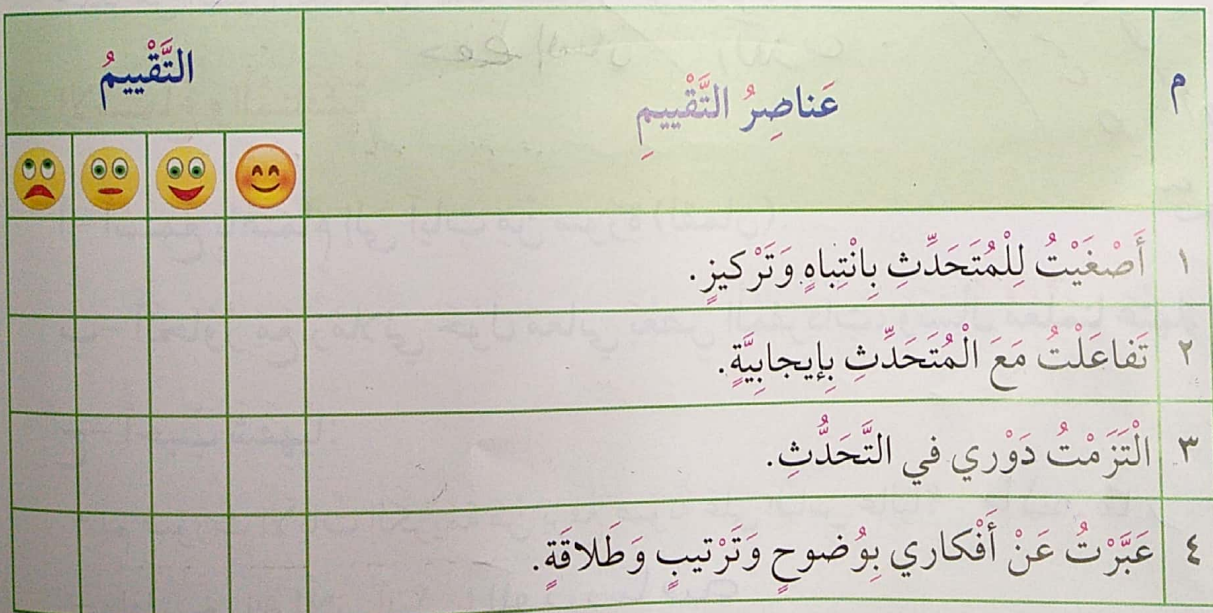 م
عَناصِرُ التَّقْييمِ
التَّقْييمُ
١ أَصْغَيْتُ لِلْمُتَحَدِّثِ بِانْتِباهٍ وَتَرْكيزٍ.
٢ تَفاعَلْتُ مَعَ الْمُتَحَدِّثِ بِإيجابِيَّةٍ.
٣ الْتَزَمْتُ دَوْري في التَّحَدُّثِ.
٤ عَبَّرْتُ عَنْ أَفْكاري بِوُضوحٍ وَتَرْتيبٍ وَطَلاقَةٍ.